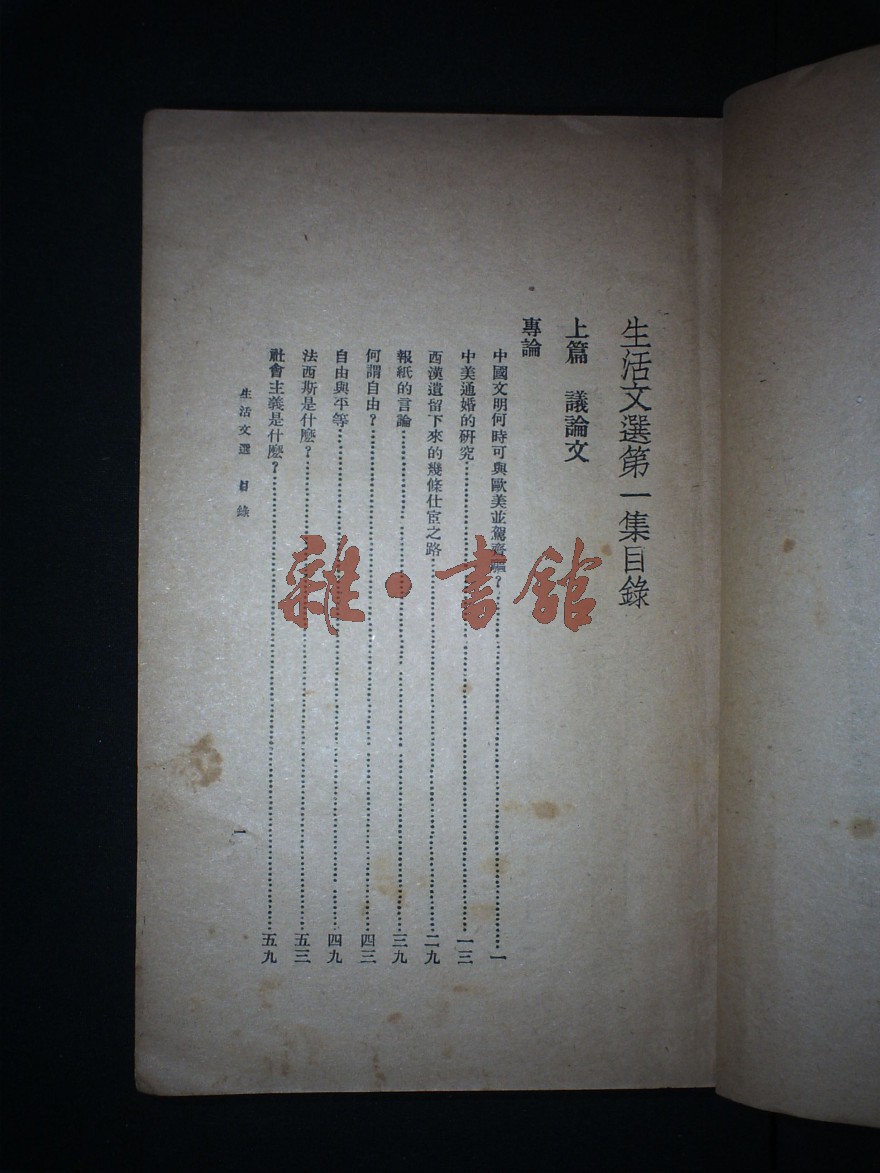 生活文選第一集目錄
上篇 議論文
專論
中國文明何時可與歐美並駕齊驅？……一
中美通婚的研究……一三
西漢遺留下來的幾條仕宦之路……二九
報紙的言論……三九
何謂自由？……四三
自由與平等……四九
法西斯是什麽？……五三
社會主義是什麽？……五九
生活文選 目錄
一
雜·書館